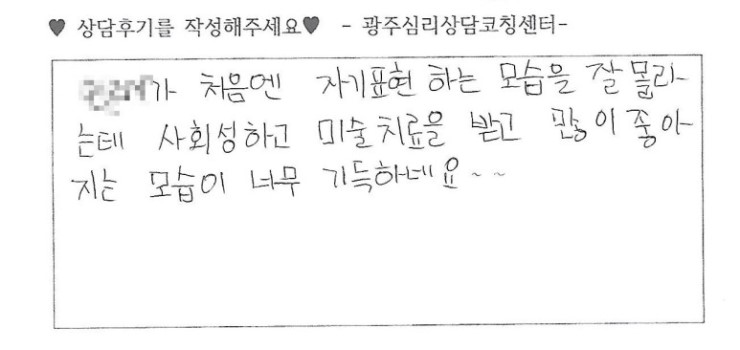 ♥ 상담후기를 작성해주세요♥ - 광주심리상담코칭센터-
가 처음엔 자기표현 하는 모습을 잘 몰라
는데 사회성하고 미술치료을 받고 많이 좋아
지는 모습이 너무 기득하네요~~